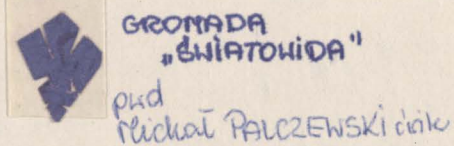 GROMADA
„ŚWIATOWIDA"
pwd
Michał PALCZEWSKI ćwik